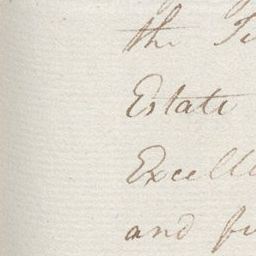 the
Estate
Excell
and